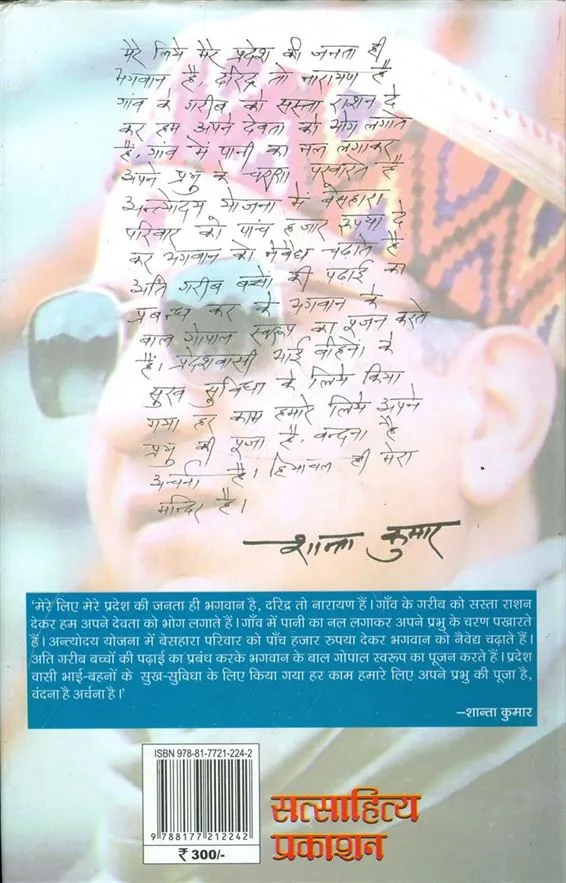 मेरे लिये मेरे प्रदेश की जनता ही
भगवान है, दरिद्र तो नारायण है
गांव के गरीब को सस्ता राशन दे
कर हम अपने देवता को भोग लगाते
हैं, गांव में पानी का नल लगाकर
अपने प्रभु के चरण पखारते हैं
अन्त्योदय योजना में बेसहारा
परिवार को पांच हजार रूपया दे
कर भगवान को नैवेध चढ़ाते है
अति गरीब बच्चों की पढाई का
प्रबन्ध कर के भगवान के
बाल गोपाल स्वरूप का पूजन करते
हैं। प्रदेशवासी भाई बहिनों के
सुख सुविधा के लिये किया
गया हर काम हमारे लिये अपने
प्रभु की पूजा है, वन्दना है
अर्चना है। हिमाचल ही मेरा
मन्दिर है।
शान्ता कुमार
'मेरे लिए मेरे प्रदेश की जनता ही भगवान है, दरिद्र तो नारायण हैं। गाँव के गरीब को सस्ता राशन
देकर हम अपने देवता को भोग लगाते हैं। गाँव में पानी का नल लगाकर अपने प्रभु के चरण पखारते
हैं। अन्त्योदय योजना में बेसहारा परिवार को पाँच हजार रुपया देकर भगवान को नैवेद्य चढ़ाते हैं।
अति गरीब बच्चों की पढ़ाई का प्रबंध करके भगवान के बाल गोपाल स्वरूप का पूजन करते हैं। प्रदेश
वासी भाई-बहनों के सुख-सुविधा के लिए किया गया हर काम हमारे लिए अपने प्रभु की पूजा है,
वंदना है अर्चना है।'
–शान्ता कुमार
ISBN 978-81-7721-224-2
9 788177 212242
₹ 300/-
सत्साहित्य
प्रकाशन